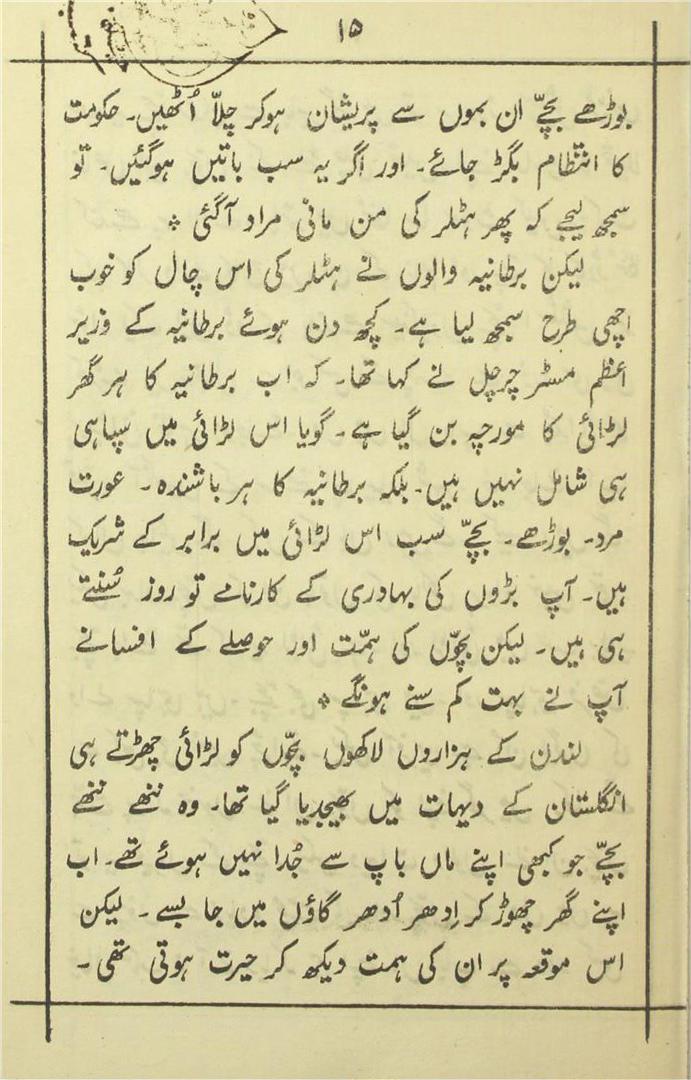 ۱۵
بوڑھے بچّے ان بموں سے پریشان ہوکر چلّا اُٹھیں۔ حکومت
کا انتظام بگڑ جائے۔ اور اگر یہ سب باتیں ہوگئیں۔ تو
سمجھ لیجے کہ پھر ہٹلر کی من مانی مراد آگئی ۔:
لیکن برطانیہ والوں نے ہٹلر کی اس چال کو خوب
اچھی طرح سمجھ لیا ہے۔ کچھ دن ہوئے برطانیہ کے وزیر
اعظم مسٹر چرچل نے کہا تھا۔ کہ اب برطانیہ کا ہر گھر
لڑائی کا مورچہ بن گیا ہے۔ گویا اس لڑائی میں سپاہی
ہی شامل نہیں ہیں۔ بلکہ برطانیہ کا ہر باشندہ۔ عورت
مرد۔ بوڑھے۔ بچّے سب اس لڑائی میں برابر کے شریک
ہیں۔ آپ بڑوں کی بہادری کے کارنامے تو روز سُنتے
ہی ہیں۔ لیکن بچّوں کی ہمّت اور حوصلے کے افسانے
آپ نے بہت کم سنے ہونگے ۔:
لندن کے ہزاروں لاکھوں بچّوں کو لڑائی چھڑتے ہی
انگلستان کے دیہات میں بھیجدیا گیا تھا۔ وہ ننھے ننھے
بچّے جو کبھی اپنے ماں باپ سے جُدا نہیں ہوئے تھے۔ اب
اپنے گھر چھوڑ کر اِدھر اُدھر گاؤں میں جا بسے۔ لیکن
اس موقعہ پر ان کی ہمت دیکھ کر حیرت ہوتی تھی۔